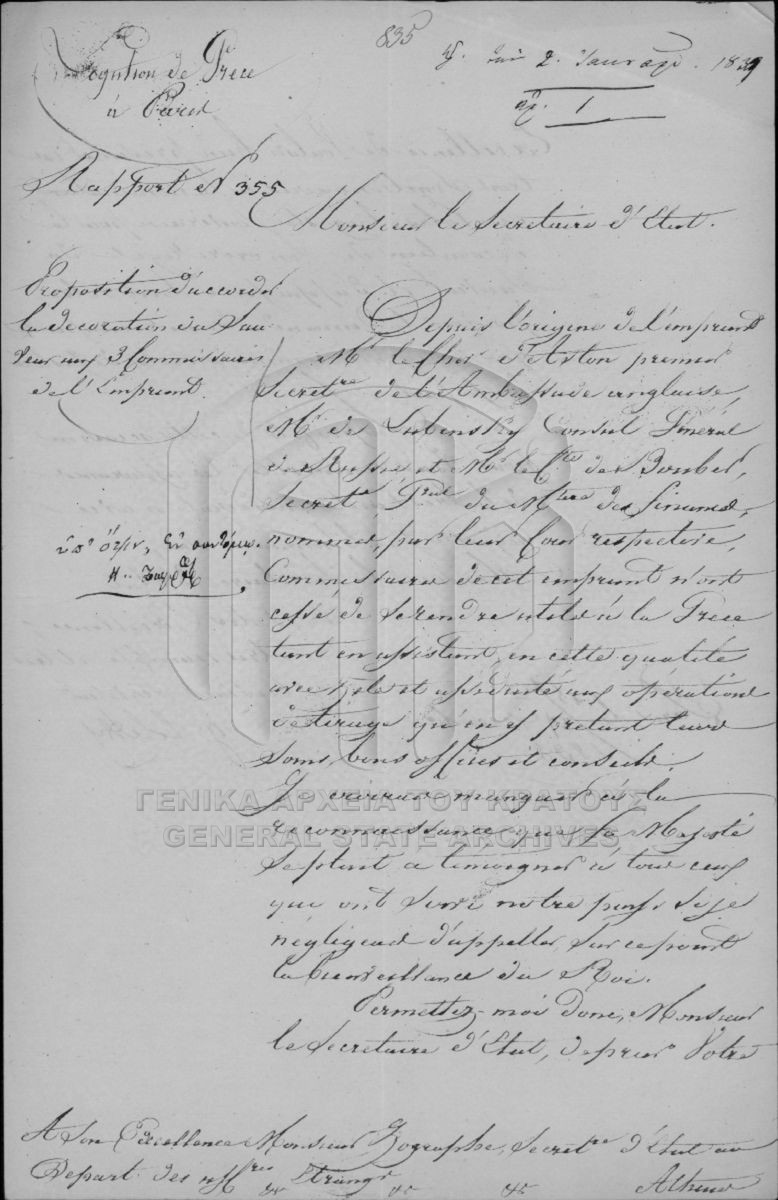 835
Légation de Grèce
à Paris
2. Ιανουαρ. 1839
αρ. 1
Rapport N 355
Monsieur le Secrétaire d'Etat.
Proposition d'accorder
la décoration du Sau-
veur aux 3 Commissaires
de l'Emprunt.
Depuis l'origine de l'emprunt
Mr. le Cher. d'Aston premier
Secretre de l'Ambassade anglaise,
Mr de Lubinsky Consul Général
de Russie et Mr le Cte de Boubers,
Secret. Gral du Mtere des finances,
nommés, par leur Cour respective,
Commissaires de cet emprunt n'ont
cessé de se rendre utiles à la Grèce
tant en assistant, en cette qualité
avec zèle et assiduité aux opérations
de tirage qu'en y prêtant leurs
soins, bons offices et conseils.
Je croirais manquer à la
reconnaissance que Sa Majesté
se plait a témoigner à tous ceux
qui ont servi notre pays si je
négligeais d'appeller, sur ce point
la bienveillance du Roi.
Permettez-moi donc, Monsieur
le Secrétaire d'Etat, de prier Votre
ΓΕΝΙΚΑ ΑΡΧΕΙΑ ΤΟΥ ΚΡΑΤΟΥΣ
GENERAL STATE ARCHIVES
A Son Excellence Monsieur Zographos, Secretre d'Etat au
Depart. des Affres Etrangres
Athènes